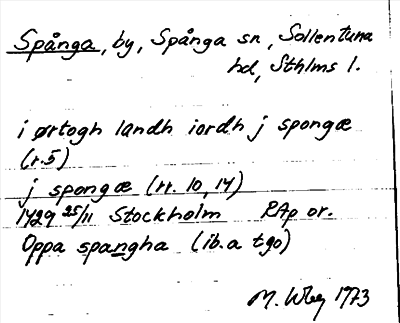 Spånga, by, Spånga sn, Sollentuna
hd, Sthlms l.
i ørtogh landh iordh j spongæ
(r.5)
j spongæ (rr. 10, 14)
1429 25/11 Stockholm RAp or.
Oppa spangha (ib. a tgo)
M. Wbg 1973